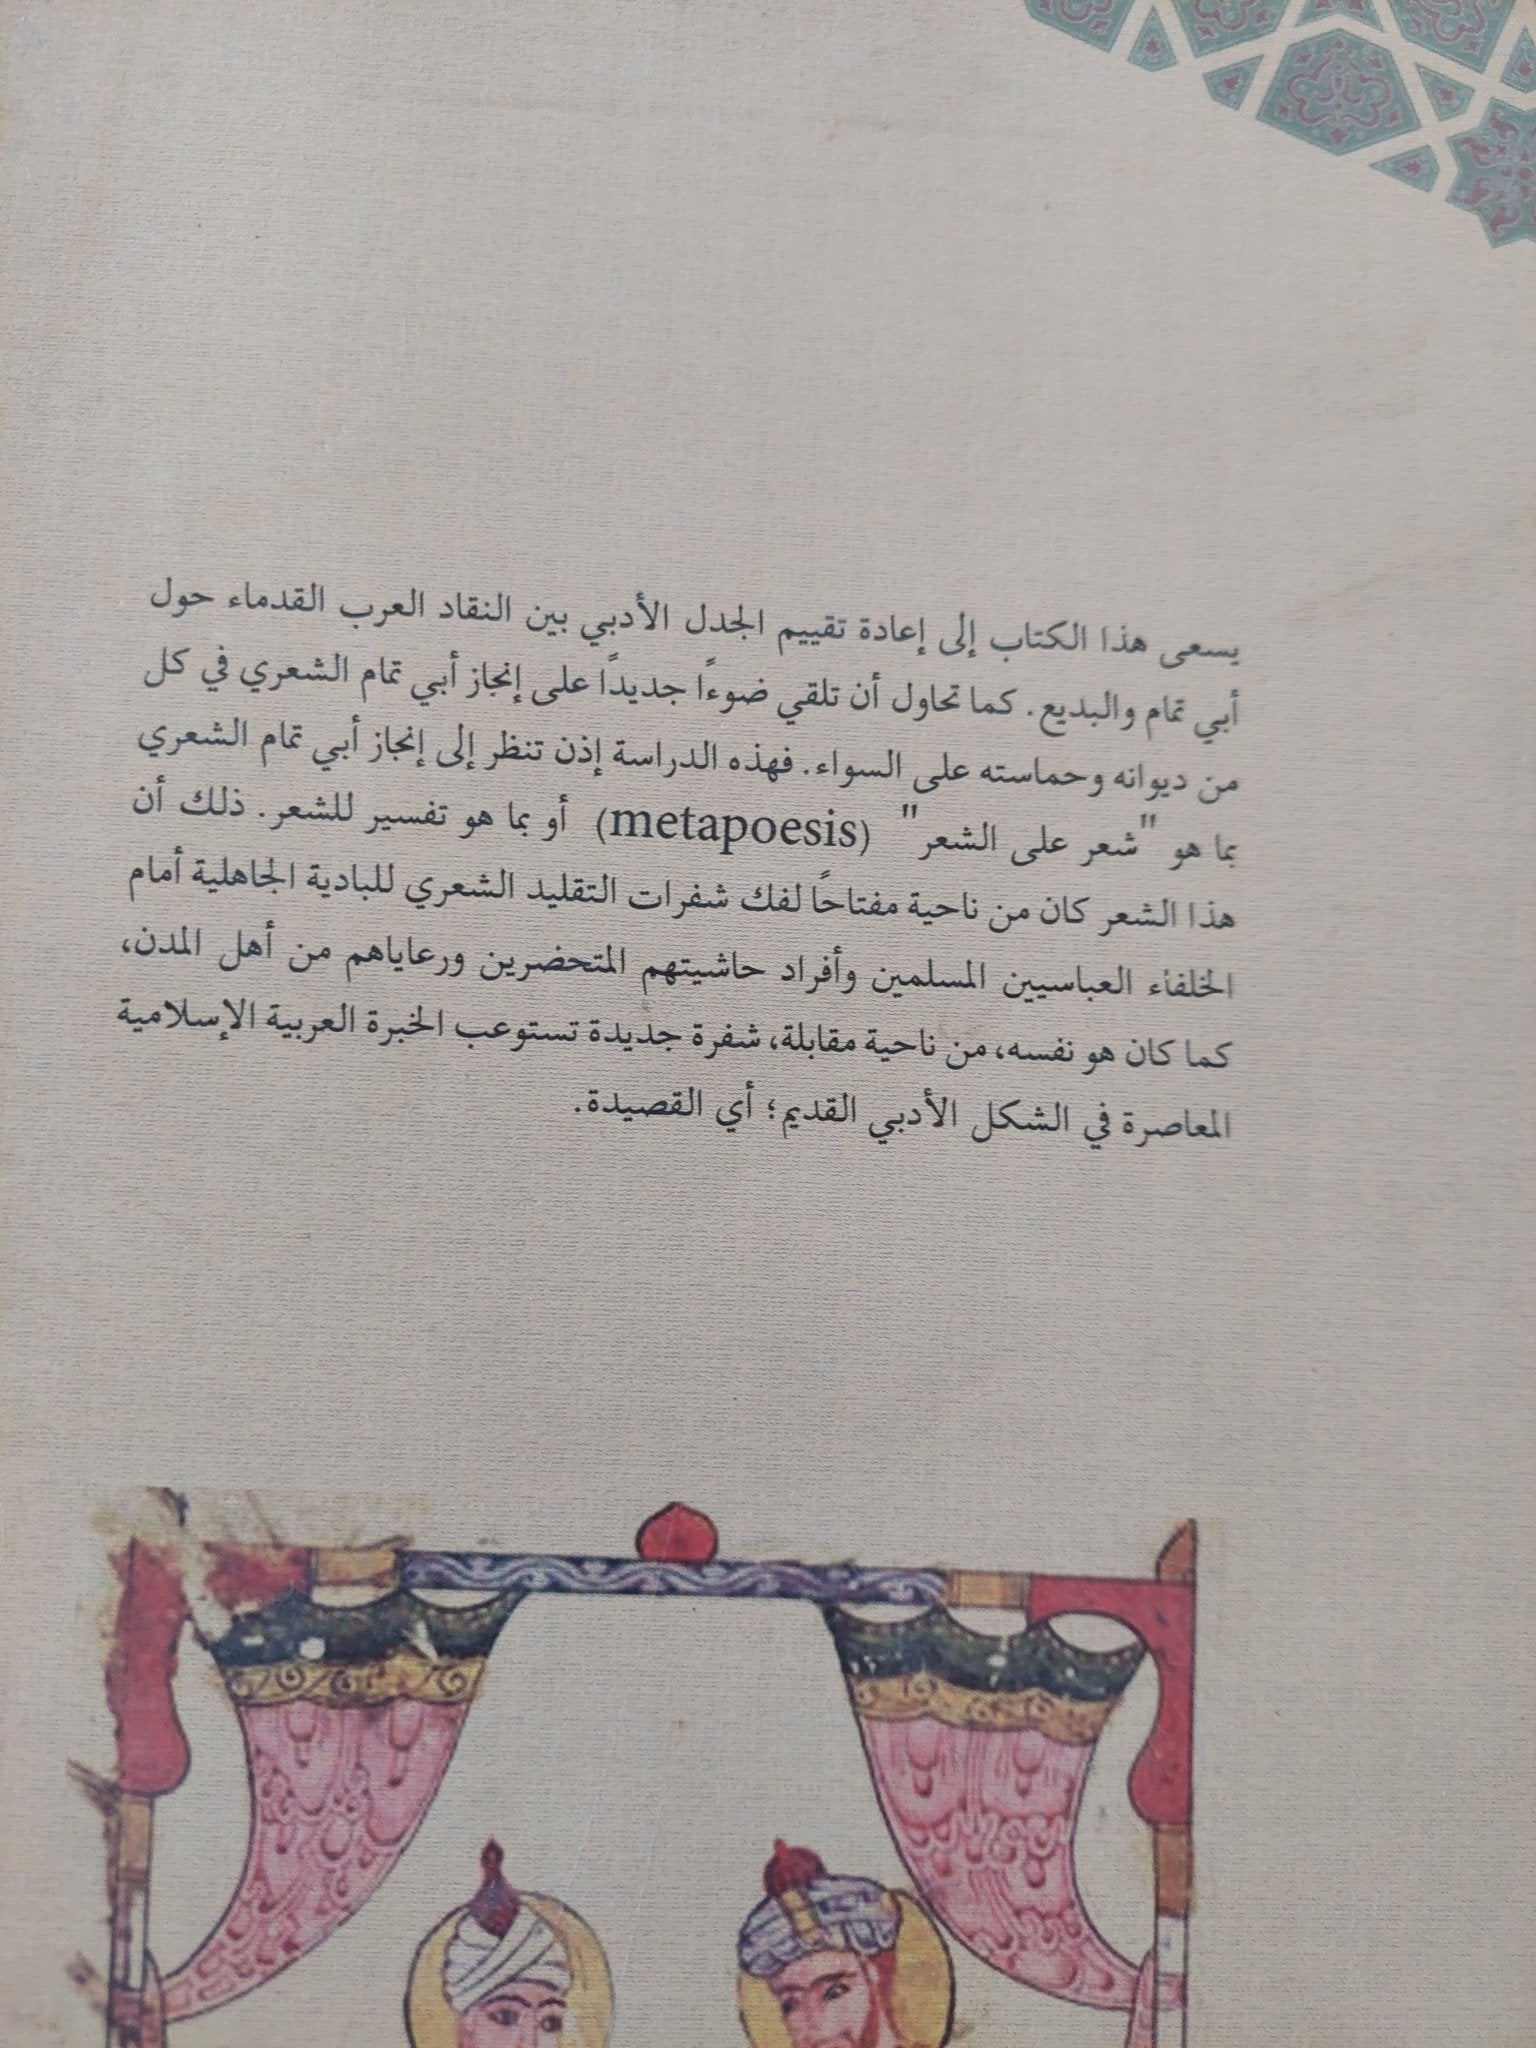 يسعى هذا الكتاب إلى إعادة تقييم الجدل الأدبي بين النقاد العرب القدماء حول
أبي تمام والبديع. كما تحاول أن تلقي ضوءاً جديدًا على إنجاز أبي تمام الشعري في كل
من ديوانه وحماسته على السواء. فهذه الدراسة إذن تنظر إلى إنجاز أبي تمام الشعري
بما هو "شعر على الشعر" (metapoesis) أو بما هو تفسير للشعر. ذلك أن
هذا الشعر كان من ناحية مفتاحًا لفك شفرات التقليد الشعري للبادية الجاهلية أمام
الخلفاء العباسيين المسلمين وأفراد حاشيتهم المتحضرين ورعاياهم من أهل المدن،
كما كان هو نفسه، من ناحية مقابلة، شفرة جديدة تستوعب الخبرة العربية الإسلامية
المعاصرة في الشكل الأدبي القديم؛ أي القصيدة.